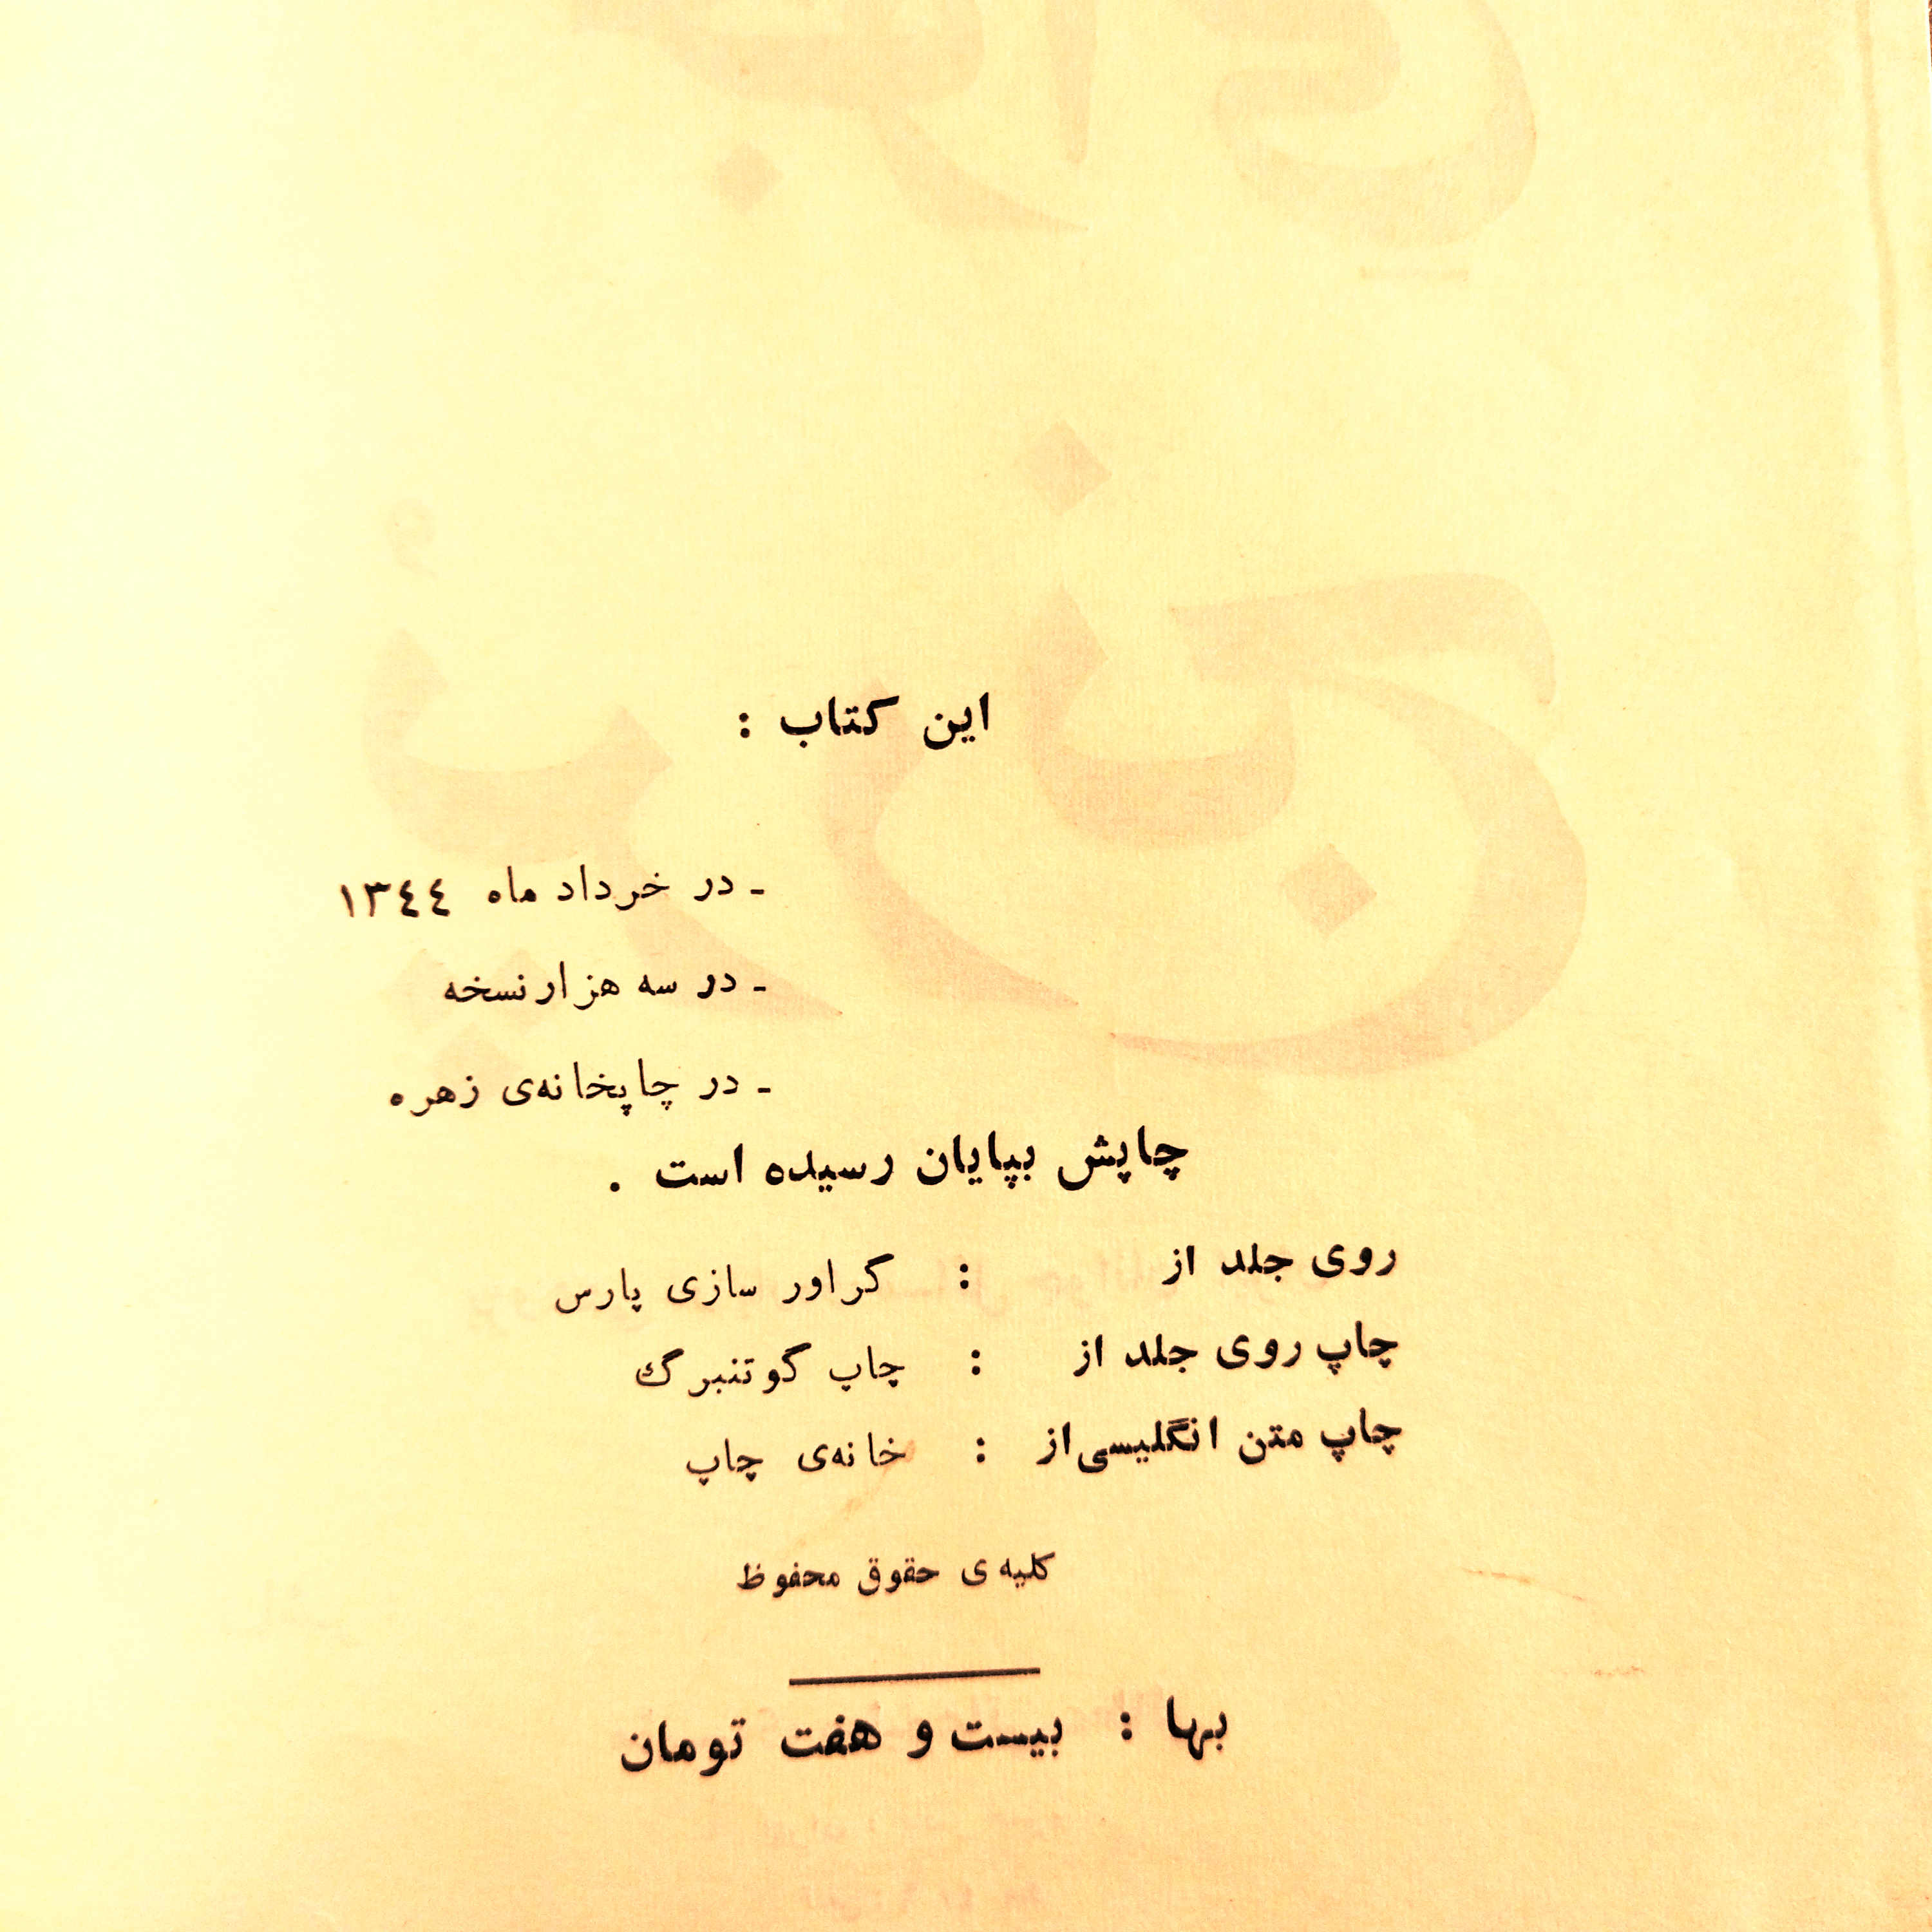 این کتاب :
ـ در خرداد ماه ١٣٤٤
ـ در سه هزار نسخه
ـ در چاپخانه‌ی زهره
چاپش بپایان رسیده است .
روی جلد از : گراور سازی پارس
چاپ روی جلد از : چاپ گوتنبرگ
چاپ متن انگلیسی از : خانه‌ی چاپ
کلیه ی حقوق محفوظ
بها : بیست و هفت تومان